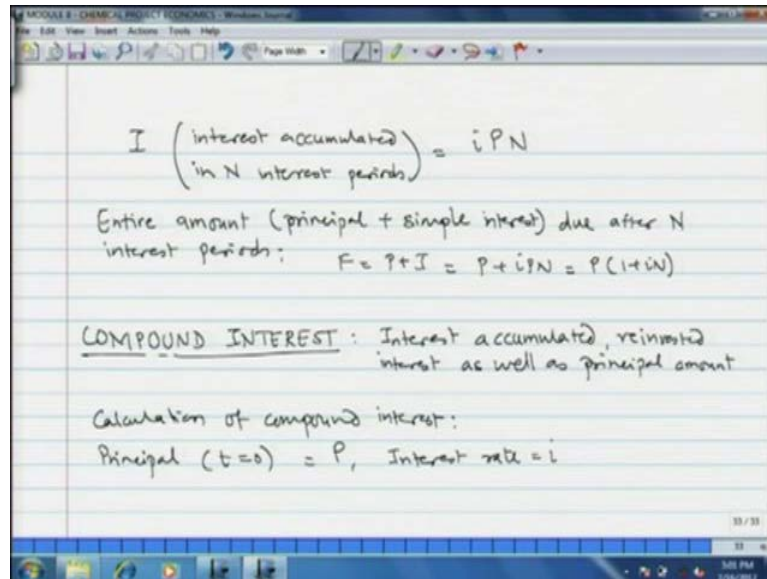 MODULE 8 - CHEMICAL PROJECT ECONOMICS - Windows Journal
File Edit View Insert Actions Tools Help
Page Width
I (interest accumulated in N interest periods) = iPN
Entire amount (principal + simple interest) due after N
interest periods: F = P+I = P+iPN = P(1+iN)
COMPOUND INTEREST : Interest accumulated, reinvested
interest as well as principal amount
Calculation of compound interest:
Principal (t=0) = P, Interest rate = i
33 / 33
33
5:01 PM